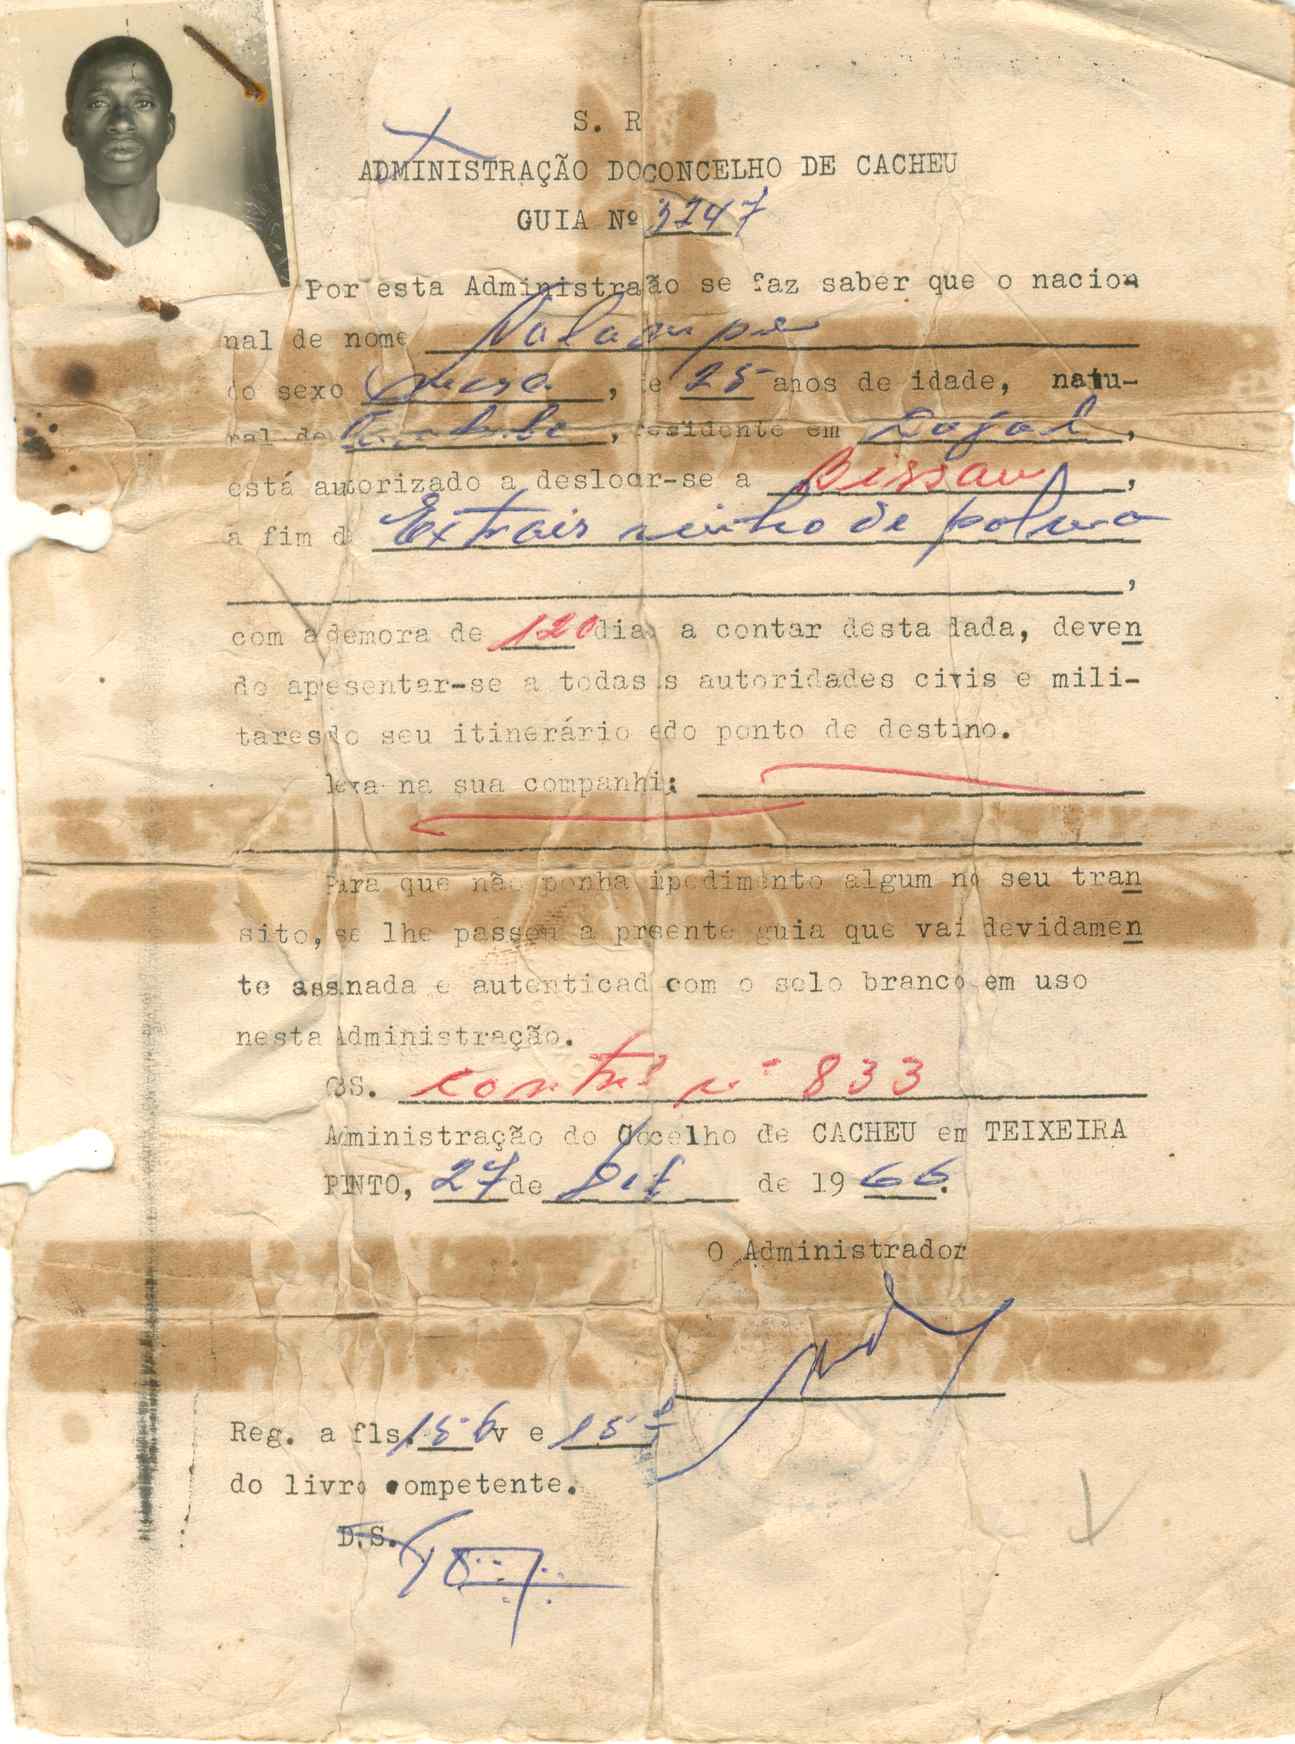 S. R
ADMINISTRAÇÃO DO CONCELHO DE CACHEU
GUIA Nº 3247
Por esta Administração se faz saber que o nacio
nal de nome
do sexo masc., de 25 anos de idade, natu-
ral de , residente em ,
está autorizado a deslocar-se a Bissau,
a fim de Extrair vinho de palma
,
com a demora de 120 dias a contar desta dada, deven
do apresentar-se a todas as autoridades civis e mili-
tares do seu itinerário e do ponto de destino.
leva na sua companhia:
Para que não ponha ipedimento algum no seu tran
sito, se lhe passou a presente guia que vai devidamen
te assinada e autenticada com o selo branco em uso
nesta Administração.
OBS. contrº nº 833
Administração do Concelho de CACHEU em TEIXEIRA
PINTO, 27 de Set de 1966.
O Administrador
Reg. a fls. 156 v e 157
do livro competente.
D.S.